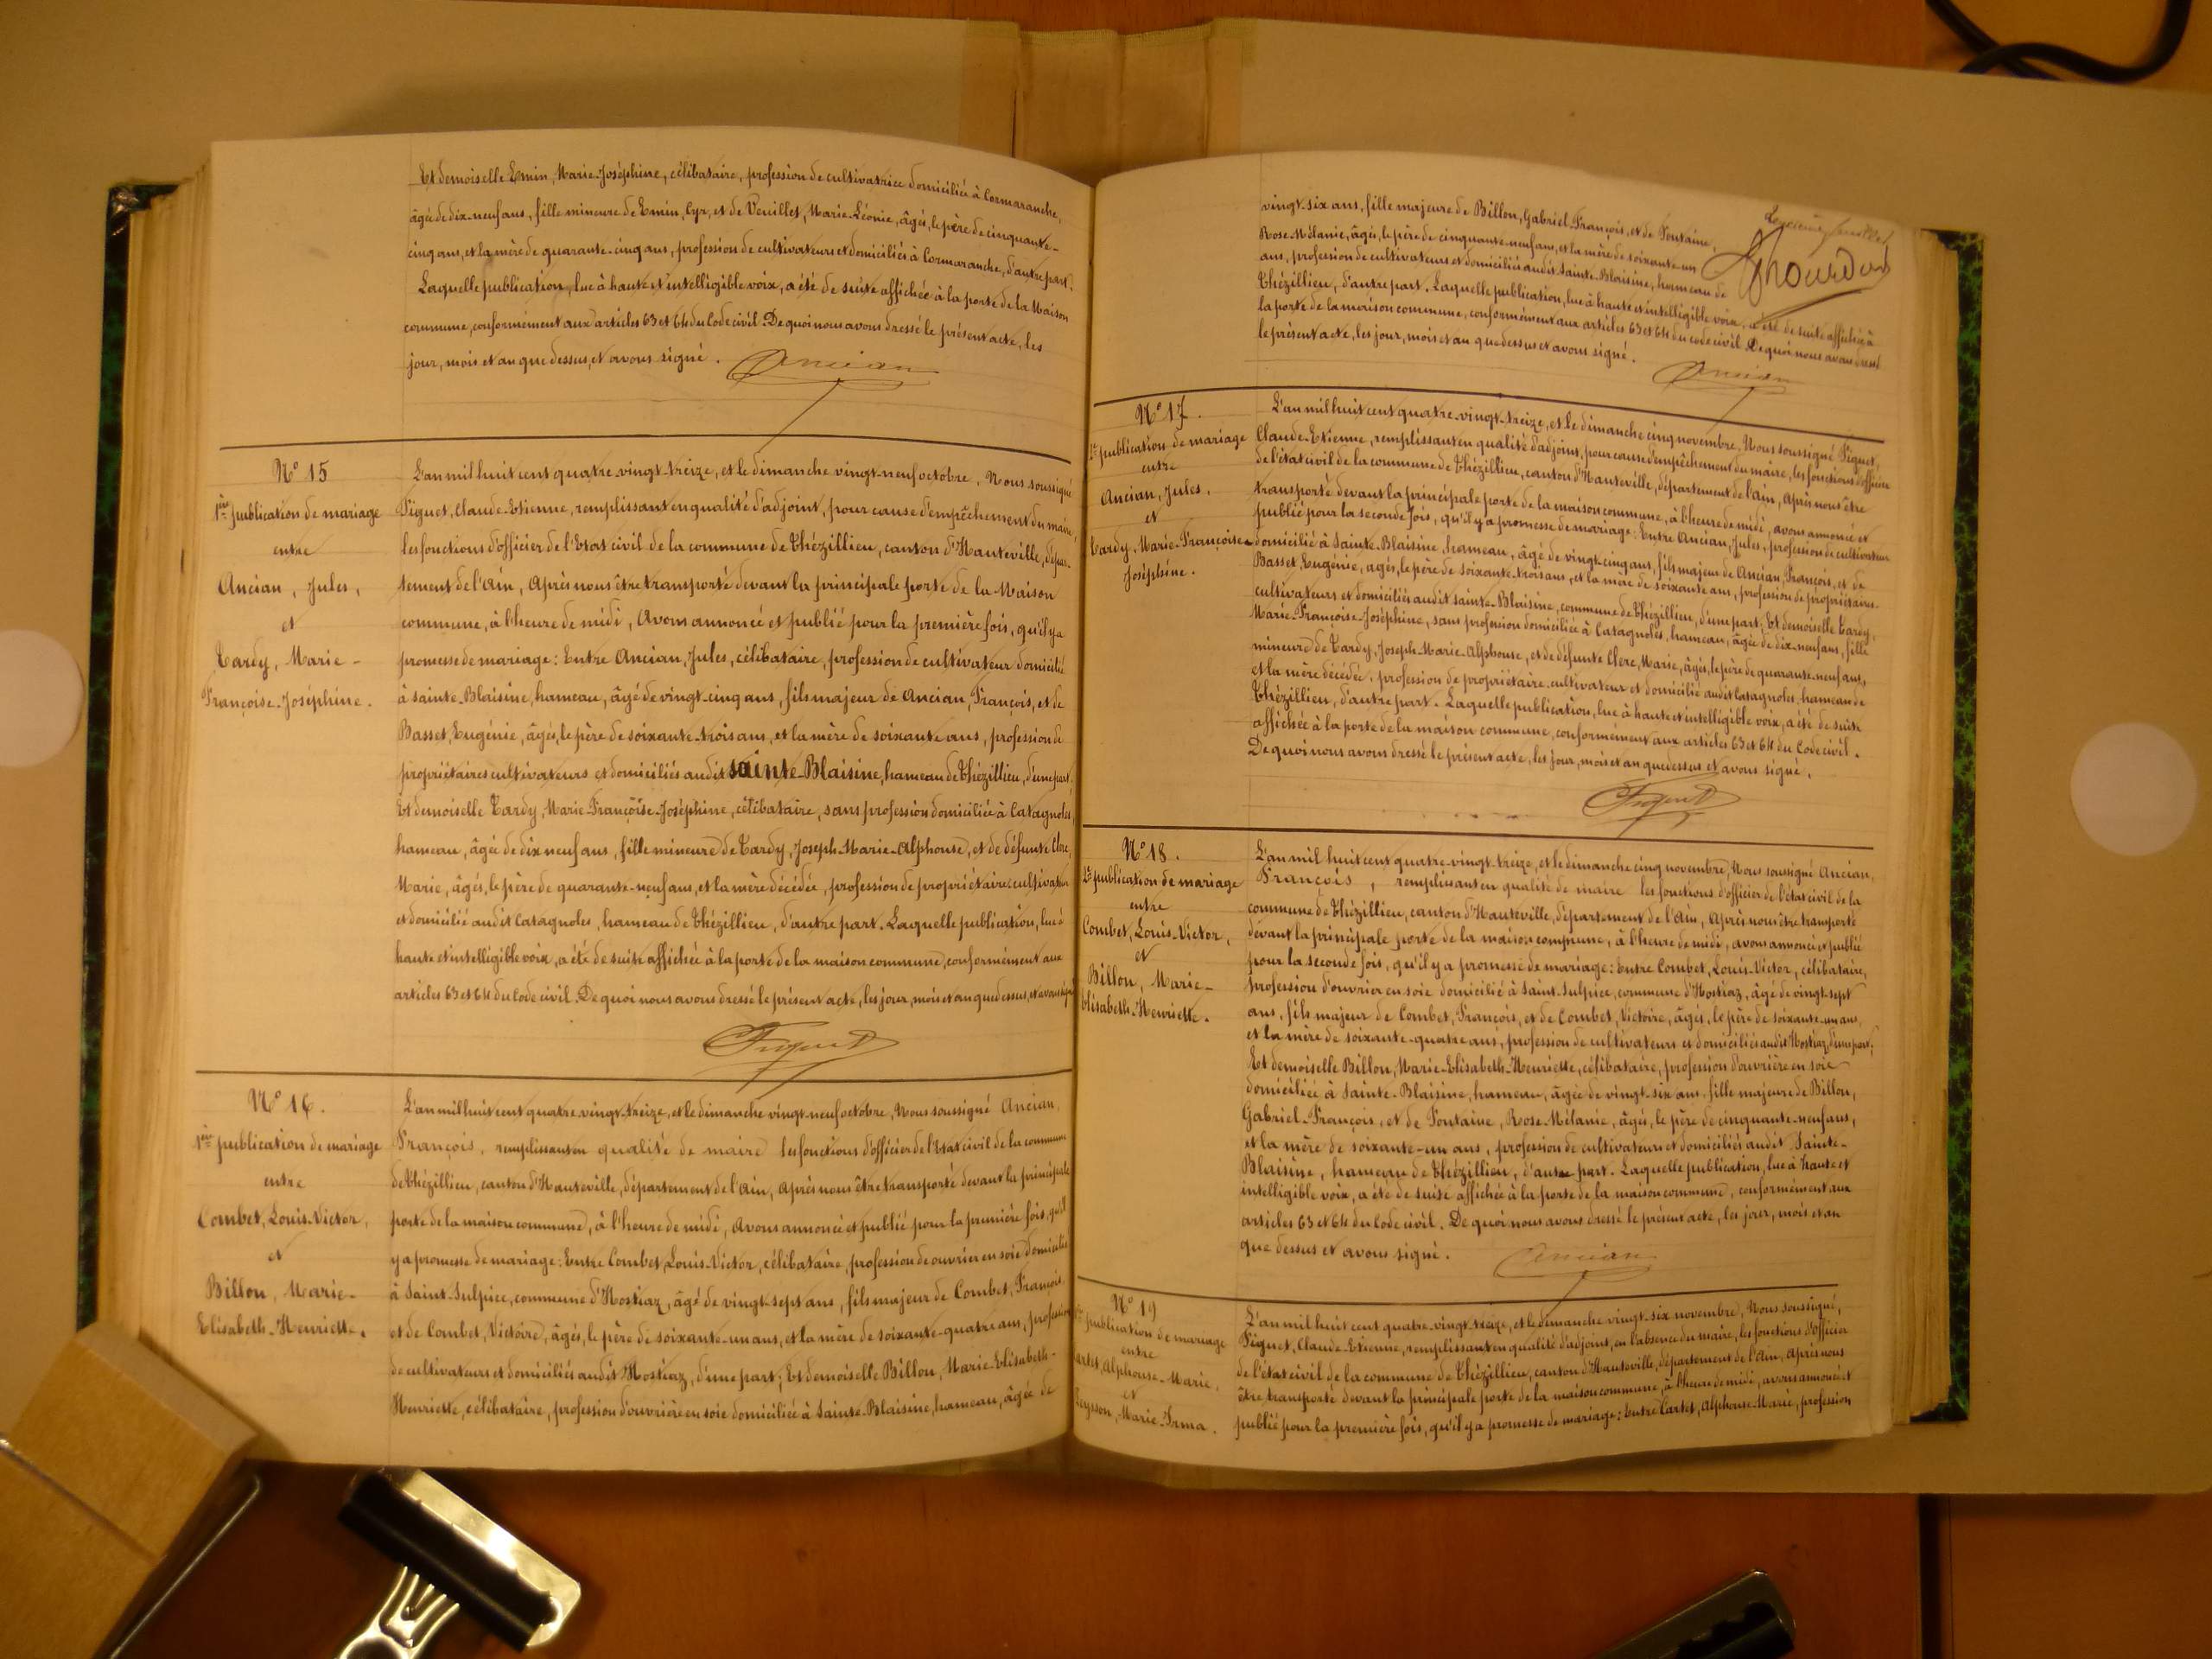 Et demoiselle Emin, Marie-Joséphine, célibataire, profession de cultivatrice domiciliée à Cormaranche,
âgée de dix-neuf ans, fille mineure de Emin, Cyr, et de Veuillet, Marie-Léonie, âgés, le père de cinquante-
cinq ans, et la mère de quarante-cinq ans, profession de cultivateurs et domiciliés à Cormaranche, d'autre part.
Laquelle publication, lue à haute et intelligible voix, a été de suite affichée à la porte de la Maison
commune, conformément aux articles 63 et 64 du Code civil. De quoi nous avons dressé le présent acte, les
jour, mois et an que dessus, et avons signé. Ancian
N° 15
1ère publication de mariage
entre
Ancian, Jules,
et
Tardy, Marie-
Françoise-Joséphine.
L'an mil huit cent quatre-vingt-treize, et le dimanche vingt-neuf octobre, Nous soussigné
Figuet, Claude-Etienne, remplissant en qualité d'adjoint, pour cause d'empêchement du maire,
les fonctions d'officier de l'Etat civil de la commune de Thézillieu, canton d'Hauteville, dépar-
tement de l'Ain, Après nous être transporté devant la principale porte de la Maison
commune, à l'heure de midi, Avons annoncé et publié pour la première fois, qu'il y a
promesse de mariage: Entre Ancian, Jules, célibataire, profession de cultivateur domicilié
à sainte-Blaisine, hameau, âgé de vingt-cinq ans, fils majeur de Ancian, François, et de
Basset, Eugénie, âgés, le père de soixante-trois ans, et la mère de soixante ans, profession de
propriétaires cultivateurs et domiciliés audit sainte-Blaisine, hameau de Thézillieu, d'une part,
Et demoiselle Tardy, Marie-Françoise-Joséphine, célibataire, sans profession domiciliée à Catagnoles,
hameau, âgée de dix neuf ans, fille mineure de Tardy, Joseph-Marie-Alphonse, et de défunte Clerc,
Marie, âgés, le père de quarante-neuf ans, et la mère décédée, profession de propriétaire cultivateur
et domicilié audit Catagnoles, hameau de Thézillieu, d'autre part. Laquelle publication, lue à
haute et intelligible voix, a été de suite affichée à la porte de la maison commune, conformément aux
articles 63 et 64 du Code civil. De quoi nous avons dressé le présent acte, les jour, mois et an que dessus, et avons signé
Figuet
N° 16.
1ère publication de mariage
entre
Combet, Louis-Victor,
et
Billon, Marie-
Elisabeth-Henriette.
L'an mil huit cent quatre-vingt-treize, et le dimanche vingt-neuf octobre, Nous soussigné Ancian,
François, remplissant en qualité de maire les fonctions d'officier de l'Etat civil de la commune
de Thézillieu, canton d'Hauteville, département de l'Ain, Après nous être transporté devant la principale
porte de la maison commune, à l'heure de midi, Avons annoncé et publié pour la première fois, qu'il
y a promesse de mariage: Entre Combet, Louis-Victor, célibataire, profession de ouvrier en soie domicilié
à Saint-Sulpice, commune d'Hostiaz, âgé de vingt-sept ans, fils majeur de Combet, François
et de Combet, Victoire, âgés, le père de soixante-un ans, et la mère de soixante-quatre ans, profession
de cultivateurs et domiciliés audit Hostiaz, d'une part; Et demoiselle Billon, Marie-Elisabeth-
Henriette, célibataire, profession d'ouvrière en soie domiciliée à Sainte-Blaisine, hameau, âgée de
vingt-six ans, fille majeure de Billon, Gabriel-François, et de Fontaine,
Rose-Mélanie, âgés, le père de cinquante-neuf ans, et la mère de soixante-un
ans, profession de cultivateurs et domiciliés audit Sainte-Blaisine, hameau de
Thézillieu, d'autre part. Laquelle publication, lue à haute et intelligible voix, a été de suite affichée à
la porte de la maison commune, conformément aux articles 63 et 64 du code civil. De quoi nous avons dressé
le présent acte, les jour, mois et an que dessus et avons signé.
Ancian
N° 17.
2e publication de mariage
entre
Ancian, Jules,
et
Tardy, Marie-Françoise-
Joséphine.
L'an mil huit cent quatre-vingt-treize, et le dimanche cinq novembre, Nous soussigné Figuet,
Claude-Etienne, remplissant en qualité d'adjoint, pour cause d'empêchement du maire, les fonctions d'officier
de l'état civil de la commune de Thézillieu, canton d'Hauteville, département de l'Ain, Après nous être
transporté devant la principale porte de la maison commune, à l'heure de midi, avons annoncé et
publié pour la seconde fois, qu'il y a promesse de mariage: Entre Ancian, Jules, profession de cultivateur
domicilié à Sainte-Blaisine, hameau, âgé de vingt-cinq ans, fils majeur de Ancian, François, et de
Basset, Eugénie, agés, le père de soixante-trois ans, et la mère de soixante ans, profession de propriétaires
cultivateurs et domiciliés audit sainte-Blaisine, commune de Thézillieu, d'une part; Et demoiselle Tardy,
Marie-Françoise-Joséphine, sans profession domiciliée à Catagnoles, hameau, âgée de dix-neuf ans, fille
mineure de Tardy, Joseph-Marie-Alphonse, et de défunte Clerc, Marie, âgés, le père de quarante-neuf ans,
et la mère décédée, profession de propriétaire-cultivateur et domicilié audit Catagnoles, hameau de
Thézillieu, d'autre part. Laquelle publication, lue à haute et intelligible voix, a été de suite
affichée à la porte de la maison commune, conformément aux articles 63 et 64 du Code civil.
De quoi nous avons dressé le présent acte, les jour, mois et an que dessus et avons signé.
Figuet
N° 18.
2e publication de mariage
entre
Combet, Louis-Victor,
et
Billon, Marie-
Elisabeth-Henriette.
L'an mil huit cent quatre-vingt-treize, et le dimanche cinq novembre, Nous soussigné Ancian,
François, remplissant en qualité de maire les fonctions d'officier de l'état civil de la
commune de Thézillieu, canton d'Hauteville, département de l'Ain, Après nous être transporté
devant la principale porte de la maison commune, à l'heure de midi, avons annoncé et publié
pour la seconde fois, qu'il y a promesse de mariage: Entre Combet, Louis-Victor, célibataire,
profession d'ouvrier en soie domicilié à Saint-Sulpice, commune d'Hostiaz, âgé de vingt-sept
ans, fils majeur de Combet, François, et de Combet, Victoire, âgés, le père de soixante-un ans,
et la mère de soixante-quatre ans, profession de cultivateurs et domiciliés audit Hostiaz, d'une part;
Et demoiselle Billon, Marie-Elisabeth-Henriette, célibataire, profession d'ouvrière en soie
domiciliée à Sainte-Blaisine, hameau, âgée de vingt-six ans, fille majeure de Billon,
Gabriel-François, et de Fontaine, Rose-Mélanie, âgés, le père de cinquante-neuf ans,
et la mère de soixante-un ans, profession de cultivateurs et domiciliés audit Sainte-
Blaisine, hameau de Thézillieu, d'autre part. Laquelle publication, lue à haute et
intelligible voix, a été de suite affichée à la porte de la maison commune, conformément aux
articles 63 et 64 du Code civil. De quoi nous avons dressé le présent acte, les jour, mois et an
que dessus et avons signé. Ancian
N° 19
publication de mariage
entre
Cartet, Alphonse-Marie,
et
Teysson, Marie-Irma.
L'an mil huit cent quatre-vingt-treize, et le dimanche vingt-six novembre, Nous soussigné,
Figuet, Claude-Etienne, remplissant en qualité d'adjoint, en l'absence du maire, les fonctions d'officier
de l'état civil de la commune de Thézillieu, canton d'Hauteville, département de l'Ain, Après nous
être transporté devant la principale porte de la maison commune, à l'heure de midi, avons annoncé et
publié pour la première fois, qu'il y a promesse de mariage: Entre Cartet, Alphonse-Marie, profession